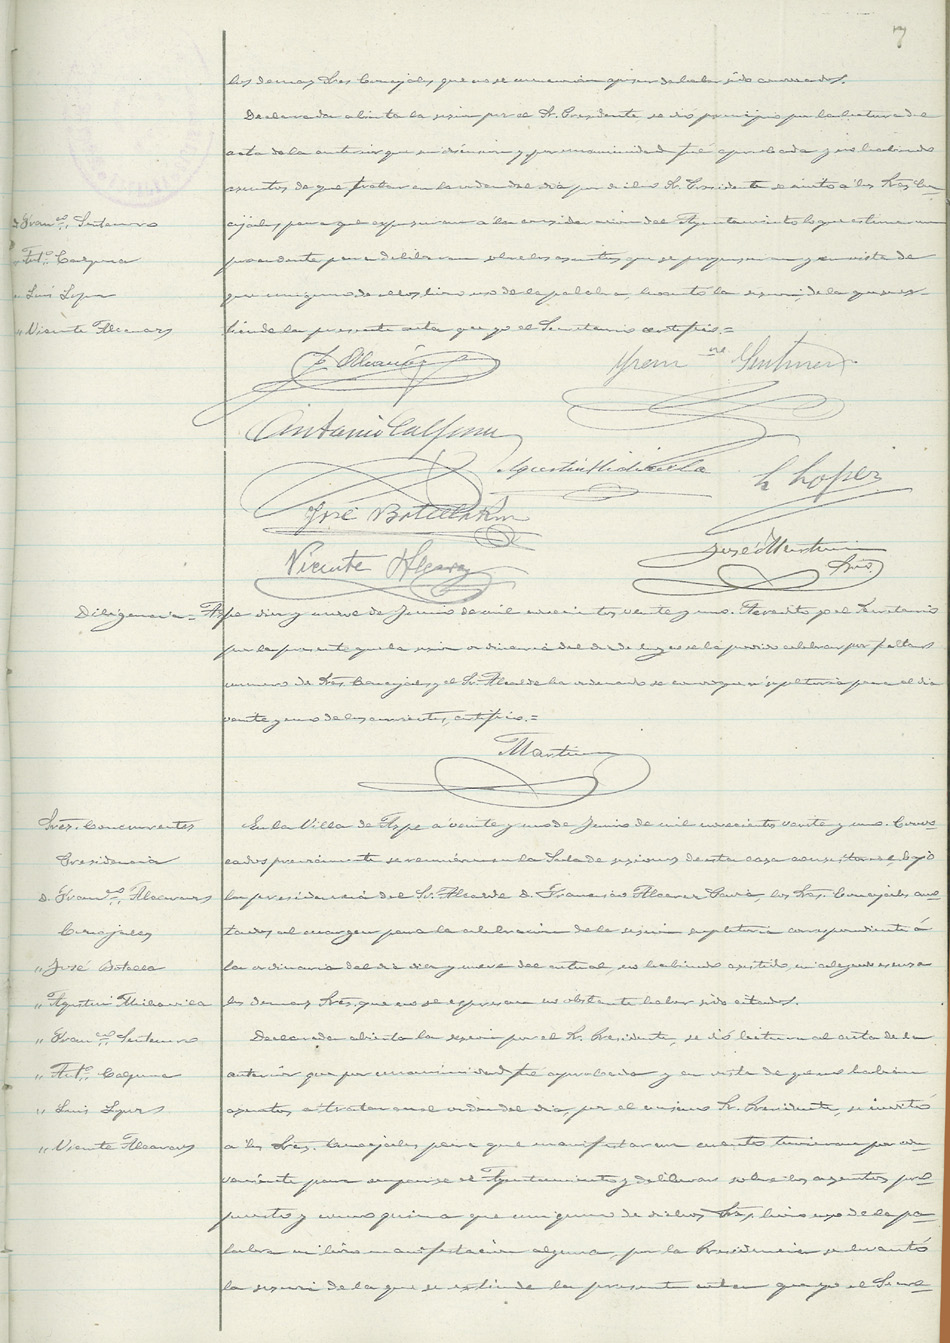 7
los demas Sres Concejales que no se enumeran apesar de haber sido convocados.
Declarada abierta la sesion por el Sr. Presidente, se dió principio por la lectura del
acta de la anterior que sin discusion y por unanimidad fué aprobada y no habiendo
asuntos de que tratar en la orden del dia por dicho Sr. Presidente se invitó a los Sres Con-
D. Franco. Santonro
cejales, para que expusieran a la consideracion del Ayuntamiento lo que estimaran
" Anto. Calpena
procedente para deliberar sobre los asuntos que se propusieran y en vista de
" Luis Lopez
que ninguno de ellos hizo uso de la palabra, levantó la sesion, de la que se ex-
" Vicente Alcaraz
tiende la presente acta que yo el Secretario certifico.=
F. Alcaraz
Antonio Calpena
L Lopez
José Botella
José Martinez
Srio.
Vicente Alcaraz
Diligencia = Aspe diez y nueve de Junio de mil novecientos veinte y uno. Acredito yo el Secretario
por la presente que la sesion ordinaria del dia de hoy no se ha podido celebrar por falta
numero de Sres. Concejales, y el Sr. Alcalde ha ordenado se convoque a supletoria para el dia
veinte y uno de los corrientes, certifico.=
Martinez
Sres. Concurrentes
En la Villa de Aspe a veinte y uno de Junio de mil novecientos veinte y uno. Convo-
Presidencia
cados previamente se reunieron en la Sala de sesiones de esta casa consistorial, bajo
D. Franco. Alcaraz
la presidencia del Sr. Alcalde D. Francisco Alcaraz Pavia, los Sres. Concejales ano-
Concejales
tados al margen para la celebracion de la sesion supletoria correspondiente á
" José Botella
la ordinaria del dia diez y nueve del actual, no habiendo asistido, ni alegado escusa
" Agustin Miralles
los demas Sres. que no se expresan no obstante haber sido citados.
" Franco. Santonro
Declarada abierta la sesion por el Sr. Presidente, se dió lectura al acta de la
" Anto. Calpena
anterior que por unanimidad fué aprobada y en vista de que no habian
" Luis Lopez
asuntos a tratar en el orden del dia, por el mismo Sr. Presidente, se invitó
" Vicente Alcaraz
a los Sres. Concejales para que manifestaran cuanto tuvieran por con-
veniente para que el Ayuntamiento y deliberar sobre los asuntos pro-
puestos y como quiera que ninguno de dichos Sres. hizo uso de la pa-
labra ni hizo manifestacion alguna, por la Presidencia se levantó
la sesion de la que se extiende la presente acta que yo el Secre-